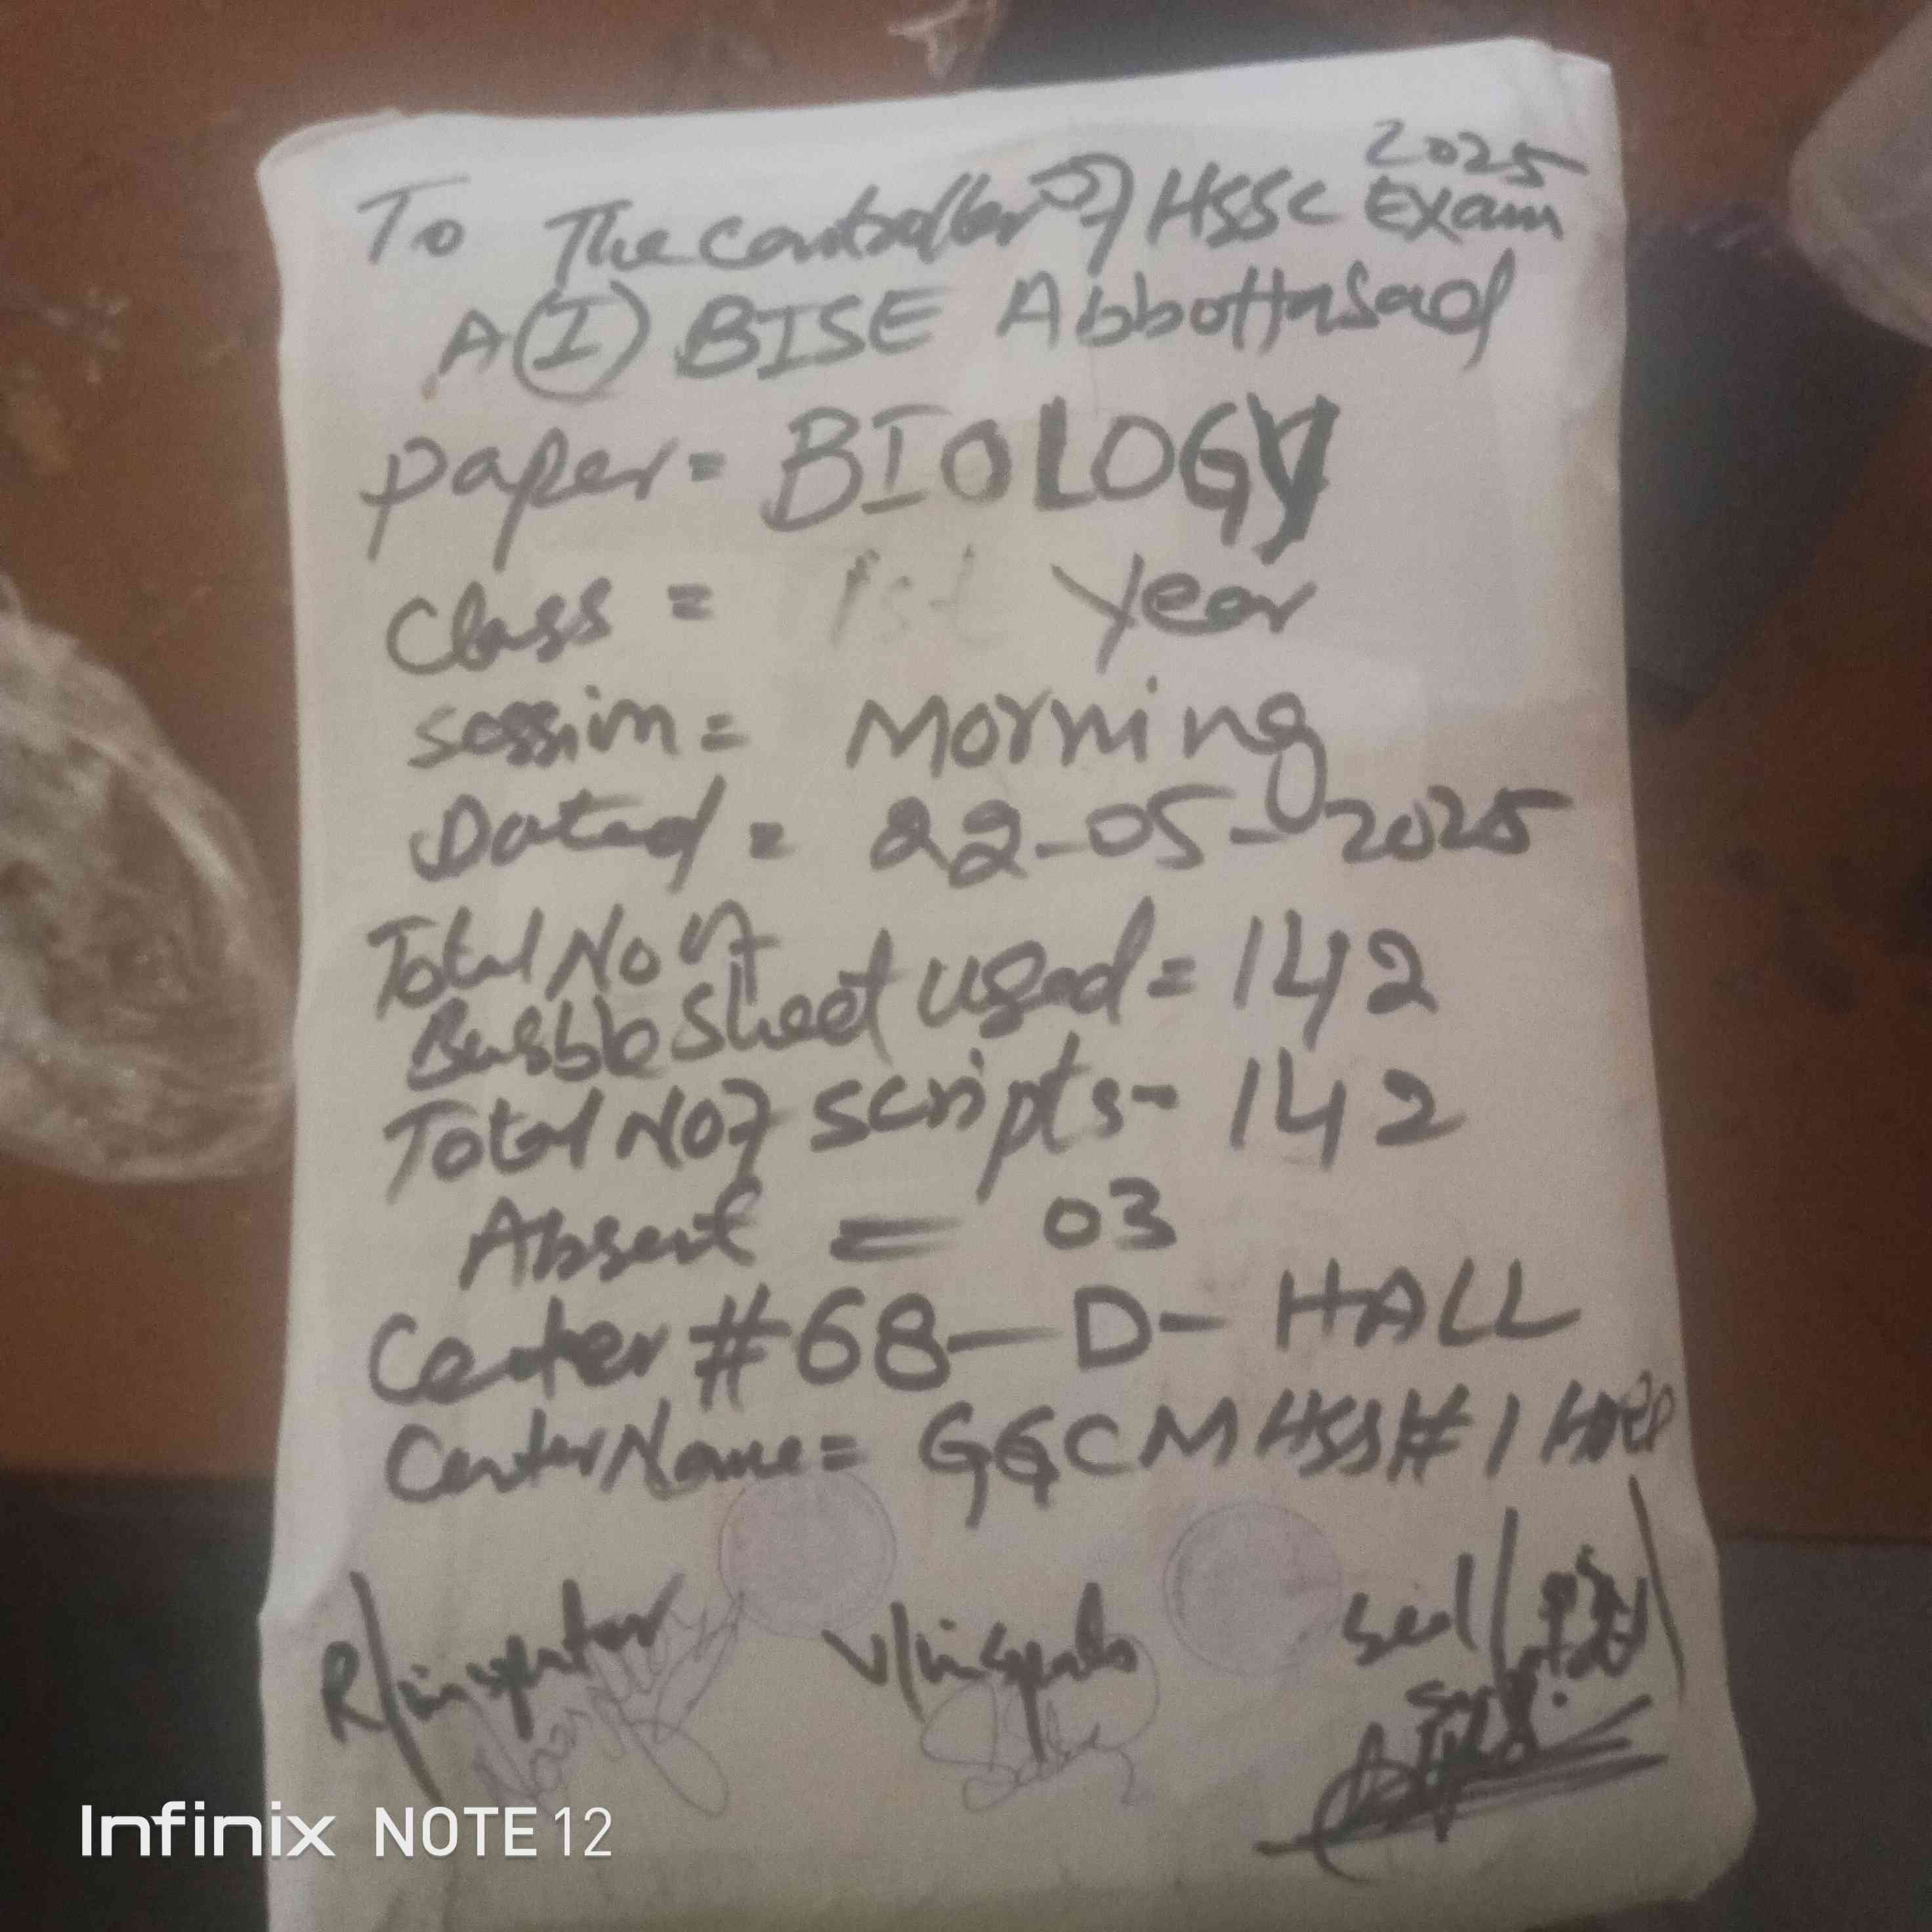 To The Controller of HSSC Exam 2025
A(I) BISE Abbottabad
Paper = BIOLOGY
Class = 1st Year
Session = Morning
Dated = 22-05-2025
Total No of
Bubble Sheet used = 142
Total No of Scripts - 142
Absent = 03
Center # 68 - D - HALL
Center Name = GGCMHSS # 1
R/inspector V/inspector
Infinix NOTE 12